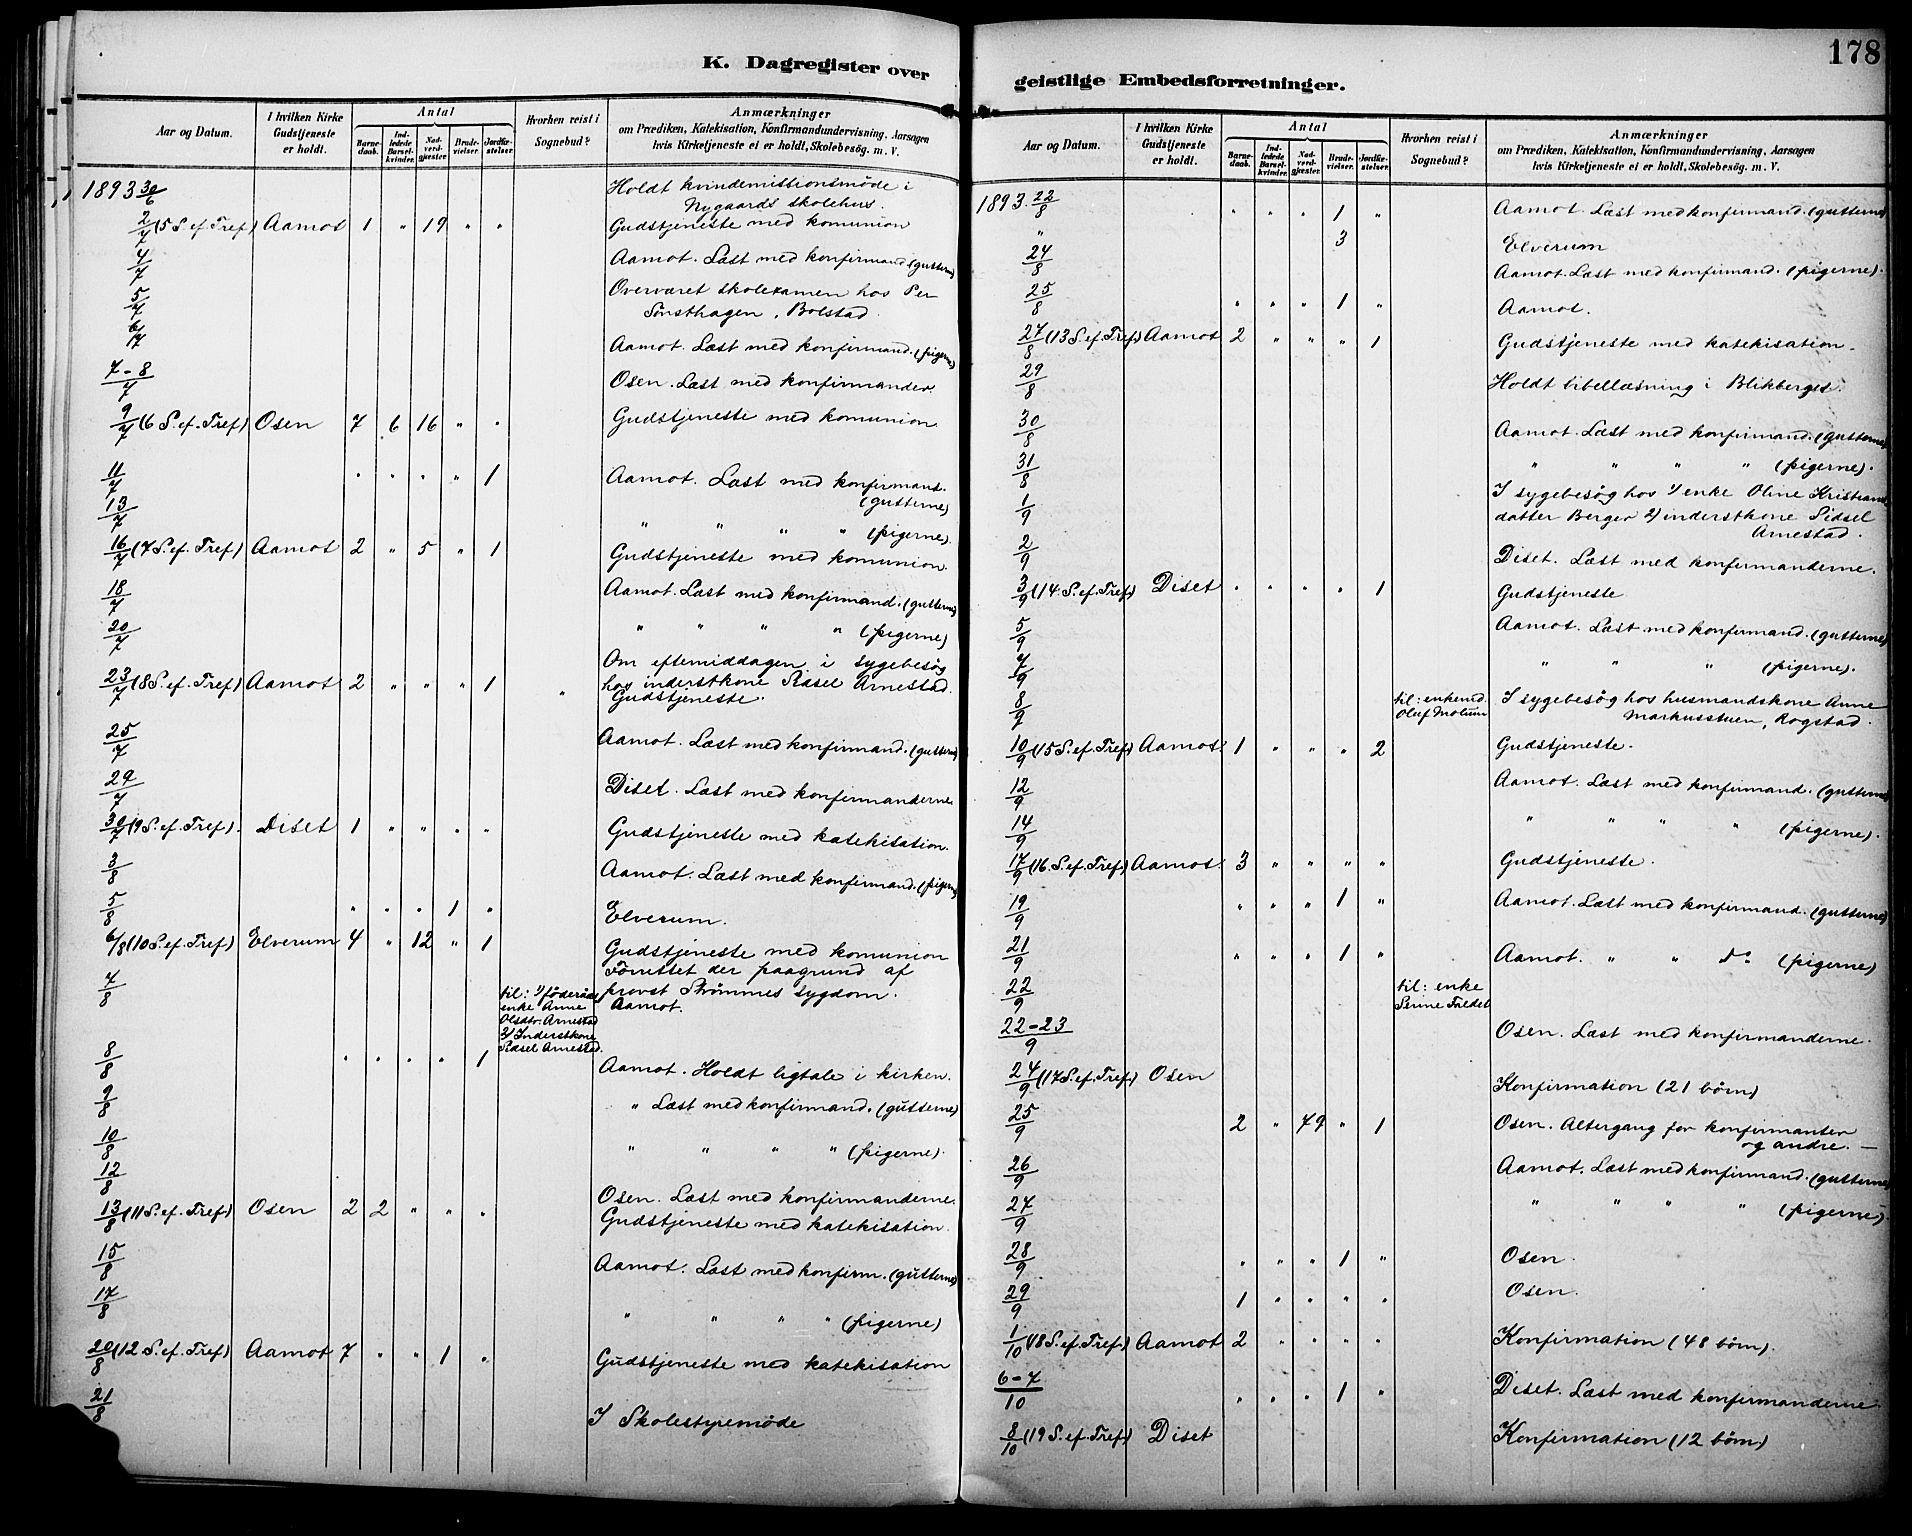 178
K. Dagregister over
geistlige Embedsforretninger.
Aar og Datum.
I hvilken Kirke Gudstjeneste er holdt.
Antal
Barnedaab.
Indledede Barselkvinder.
Nadverdgjester.
Brudevielser.
Jordfæstelser.
Hvorhen reist i Sognebud?
Anmærkninger
om Prædiken, Katekisation, Konfirmandundervisning, Aarsagen
hvis Kirketjeneste ei er holdt, Skolebesög. m. V.
1893 30/6 Holdt kvindemissionsmøde i
Nygaards skolehus.
2/7 (5 S. ef. Tref) Aamot 1 " 19 " " Gudstjeneste med komunion
4/7 Aamot. Læst med konfirmand. (gutterne)
5/7 Overværet skolexamen hos Per
Tønsthagen, Bolstad.
6/7 Aamot. Læst med konfirmand. (pigerne)
7-8/7 Osen. Læst med konfirmander.
9/7 (6 S. ef. Tref) Osen 7 6 16 " " Gudstjeneste med komunion
11/7 " " " " 1 Aamot. Læst med konfirmand.
(gutterne)
13/7 " " " " (pigerne)
16/7 (7 S. ef. Tref) Aamot 2 " 5 " 1 Gudstjeneste med komunion.
18/7 Aamot. Læst med konfirmand. (gutterne)
20/7 " " " " (pigerne)
Om eftemiddagen i sygebesøg
23/7 (8 S. ef. Tref) Aamot 2 " " " 1 " hos inderstkone Sidsel Arnestad.
Gudstjeneste.
25/7 Aamot. Læst med konfirmand. (gutterne)
29/7 Diset. Læst med konfirmanderne.
30/7 (9 S. ef. Tref). Diset 1 " " " " Gudstjeneste med katekisation.
3/8 Aamot. Læst med konfirmand. (pigerne)
5/8 " " " 1 " Elverum.
6/8 (10 S. ef. Tref) Elverum 4 " 12 " 1 Gudstjeneste med komunion
Forrettet der paagrund af
provst Strømmes sygdom.
7/8 til: 1/ føderåds Aamot.
enke Anne
Olsdtr. Arnestad
2/ Inderstkone
Sidsel Arnestad.
8/8 " " " " 1 Aamot. Holdt ligtale i kirken.
9/8 " Læst med konfirmand. (gutterne)
10/8 " " " " (pigerne)
12/8 Osen. Læst med konfirmanderne.
13/8 (11 S. ef. Tref) Osen 2 2 " " " Gudstjeneste med katekisation.
15/8 Aamot. Læst med konfirm. (gutterne)
17/8 " " " " (pigerne)
20/8 (12 S. ef. Tref) Aamot 7 " " 1 " Gudstjeneste med katekisation
21/8 I Skolestyremøde
Aar og Datum.
I hvilken Kirke Gudstjeneste er holdt.
Antal
Barnedaab.
Indledede Barselkvinder.
Nadverdgjester.
Brudevielser.
Jordfæstelser.
Hvorhen reist i Sognebud?
Anmærkninger
om Prædiken, Katekisation, Konfirmandundervisning, Aarsagen
hvis Kirketjeneste ei er holdt, Skolebesög. m. V.
1893. 22/8 " " " 1 " Aamot. Læst med konfirmand. (gutterne)
" 3 Elverum
24/8 Aamot. Læst med konfirmand. (pigerne).
25/8 " " " 1 " Aamot.
27/8 (13 S. ef. Tref) Aamot 2 " " " 1 Gudstjeneste med katekisation.
29/8 Holdt bibellæsning i Blikberget.
30/8 Aamot. Læst med konfirmand. (gutterne)
31/8 " " " " (pigerne).
1/9 I sygebesøg hos 1/ enke Oline Kristians
datter Berger 2/ inderstkone Sidsel
Arnestad.
2/9 Diset. Læst med konfirmanderne.
3/9 (14 S. ef. Tref) Diset " " " " 1 Gudstjeneste
5/9 Aamot. Læst med konfirmand. (gutterne)
7/9 " " " (pigerne).
8/9 til: enkemd. I sygebesøg hos husmandskone Anne
Oluf Motuen Markusstuen, Rogstad.
10/9 (15 S. ef. Tref) Aamot 1 " " " 2 Gudstjeneste.
12/9 Aamot. Læst med konfirmand. (gutterne)
14/9 " " " " (pigerne).
17/9 (16 S. ef. Tref) Aamot 3 " " " " Gudstjeneste.
19/9 " " " 1 " Aamot. Læst med konfirmand. (gutterne)
21/9 " " " 1 " Aamot. " " do (pigerne)
22/9 til: enke
22-23/9 Osen. Læst med konfirmanderne.
24/9 (17 S. ef. Tref.) Osen Konfirmation (21 børn)
25/9 2 " 79 " 1 Osen. Altergang for konfirmanter
og andre. —
26/9 Aamot. Læst med konfirmand. (gutterne)
27/9 " " " " (pigerne).
28/9 " " " 1 " Osen.
29/9 1 " " " " Osen.
1/10 (18 S. ef. Tref) Aamot 2 " " " " Konfirmation (48 børn).
6-7/10 " " " 1 " Diset. Læst med konfirmanderne.
8/10 (19 S. ef. Tref) Diset Konfirmation (12 børn)